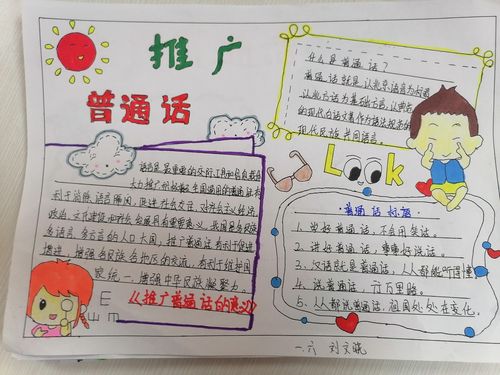 推广
普通话
什么是普通话？
普通话就是以北京语音为标准
以北方话为基础方言，以典范
的现代白话文著作为语法规范的
现代民族共同语言。
Look
语言是最重要的交际工具和信息载体
大力推广和积极全国通用的普通话有
利于消除语言隔阂，促进社会交往，对社会主义经济
政治、文化建设和社会发展具有重要意义。我国是多民族
多语言、多方言的人口大国，推广普通话有利于促进
增进，增强各民族各地区的交流，有利于维护国
家统一，增强中华民族凝聚力。
《推广普通话的意义》
E
m
普通话标语
1、说好普通话，不自用笑话。
2、讲好普通话，事事好说话。
3、汉语就是普通话，人人都能听得懂
4、说普通话，行万里路。
5、人人都说普通话，祖国处处在变化。
一.六 刘文晓